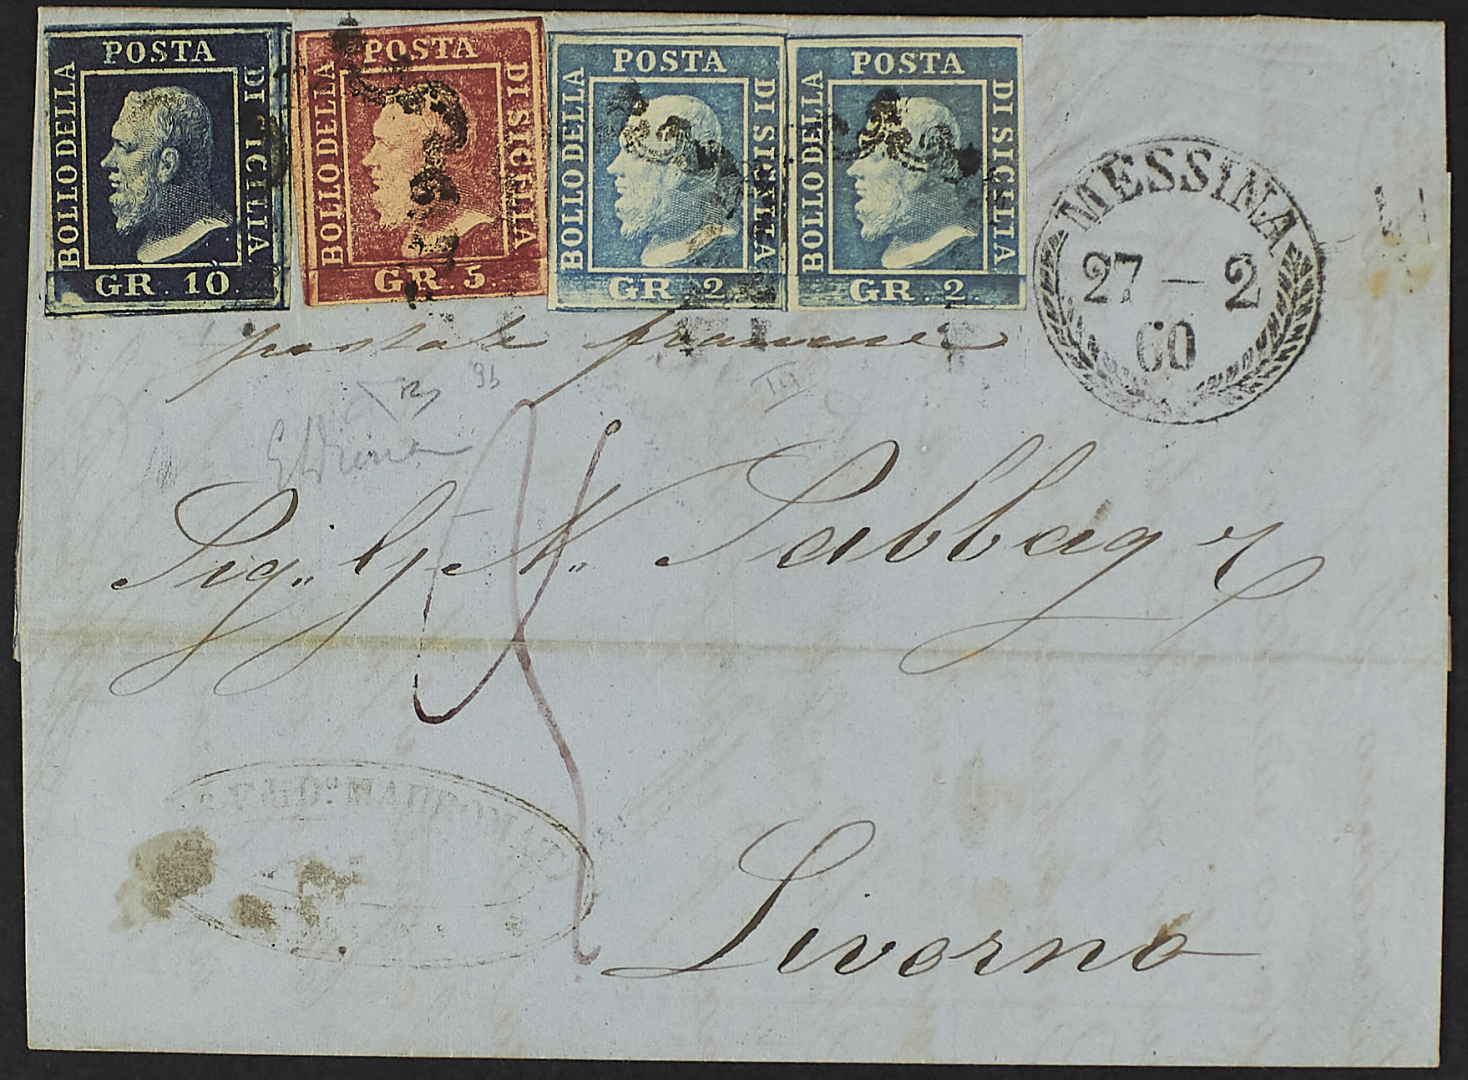 POSTA
BOLLO DELLA
DI SICILIA
GR. 10.
POSTA
BOLLO DELLA
DI SICILIA
GR. 5.
POSTA
BOLLO DELLA
DI SICILIA
GR. 2.
POSTA
BOLLO DELLA
DI SICILIA
GR. 2.
MESSINA
27 — 2
60
postale francese
96
Sig.. G. N. Sabbag
Livorno